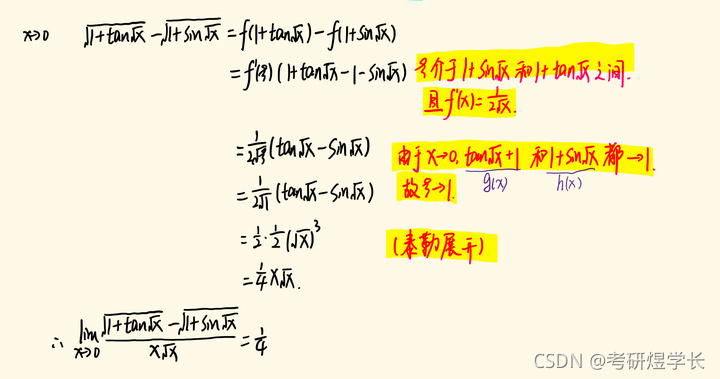 x→0 √(1+tan√x) - √(1+sin√x) = f(1+tan√x) - f(1+sin√x)
= f'(ξ)(1+tan√x-1-sin√x) ξ介于1+sin√x和1+tan√x之间.
且f'(x)=1/(2√x).
= 1/(2√ξ)(tan√x-sin√x) 由于x→0, tan√x+1 和1+sin√x都→1
= 1/(2√1)(tan√x-sin√x) 故ξ→1. g(x) h(x)
= 1/2·1/2(√x)³ (泰勒展开)
= 1/4 x√x.
∴ lim x→0 (√(1+tan√x) - √(1+sin√x))/(x√x) = 1/4
CSDN @考研煜学长